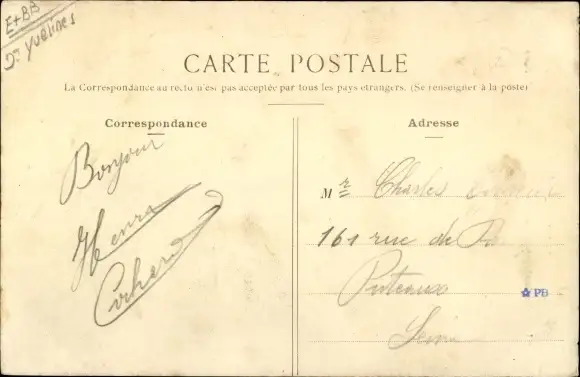 E+BB
Dpt Yvelines
CARTE POSTALE
La Correspondance au recto n'est pas acceptée par tous les pays étrangers. (Se renseigner à la poste)
Correspondance
Bonjour
Henri
Adresse
Mr Charles
161 rue de
Puteaux
Seine
PB